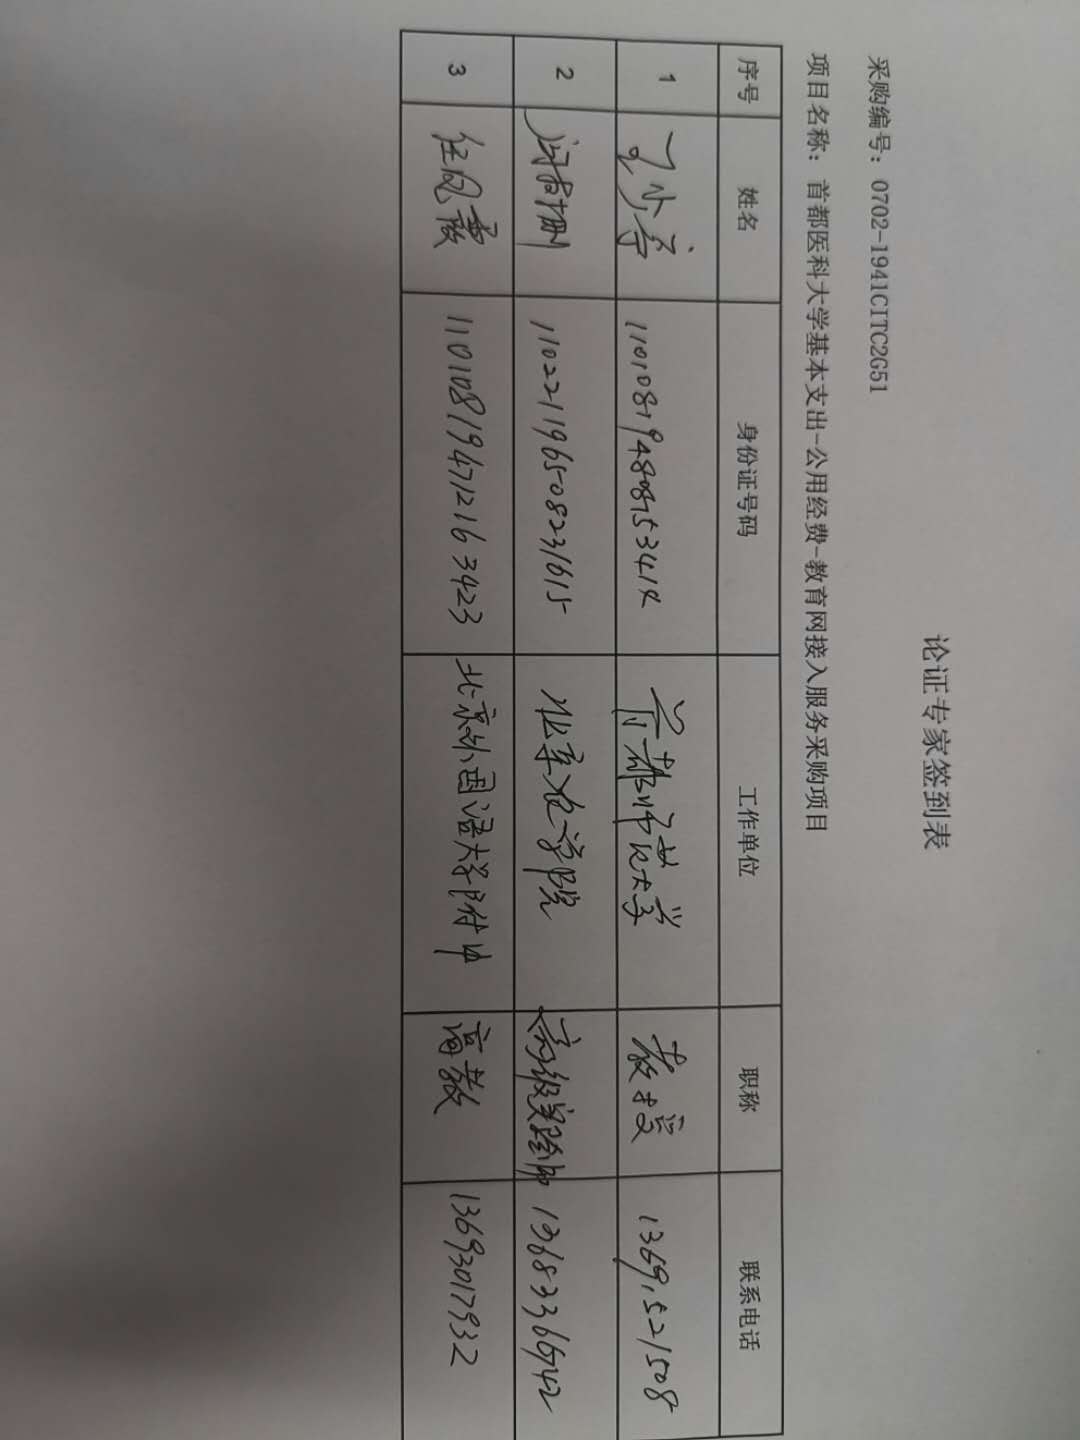 论证专家签到表
采购编号：0702-1941CITC2G51
项目名称：首都医科大学基本支出-公用经费-教育网接入服务采购项目
序号 姓名 身份证号码 工作单位 职称 联系电话
1 110108194808153414 首都师范大学 教授 13691521508
2 110221196508231615 北京农学院 高级实验师 13683366742
3 110108194712163423 北京外国语大学附中 高教 13693017932